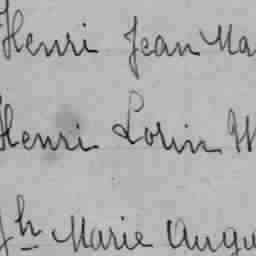 Henri Jean Ma
Henri Lorin W
Jh Marie Augu